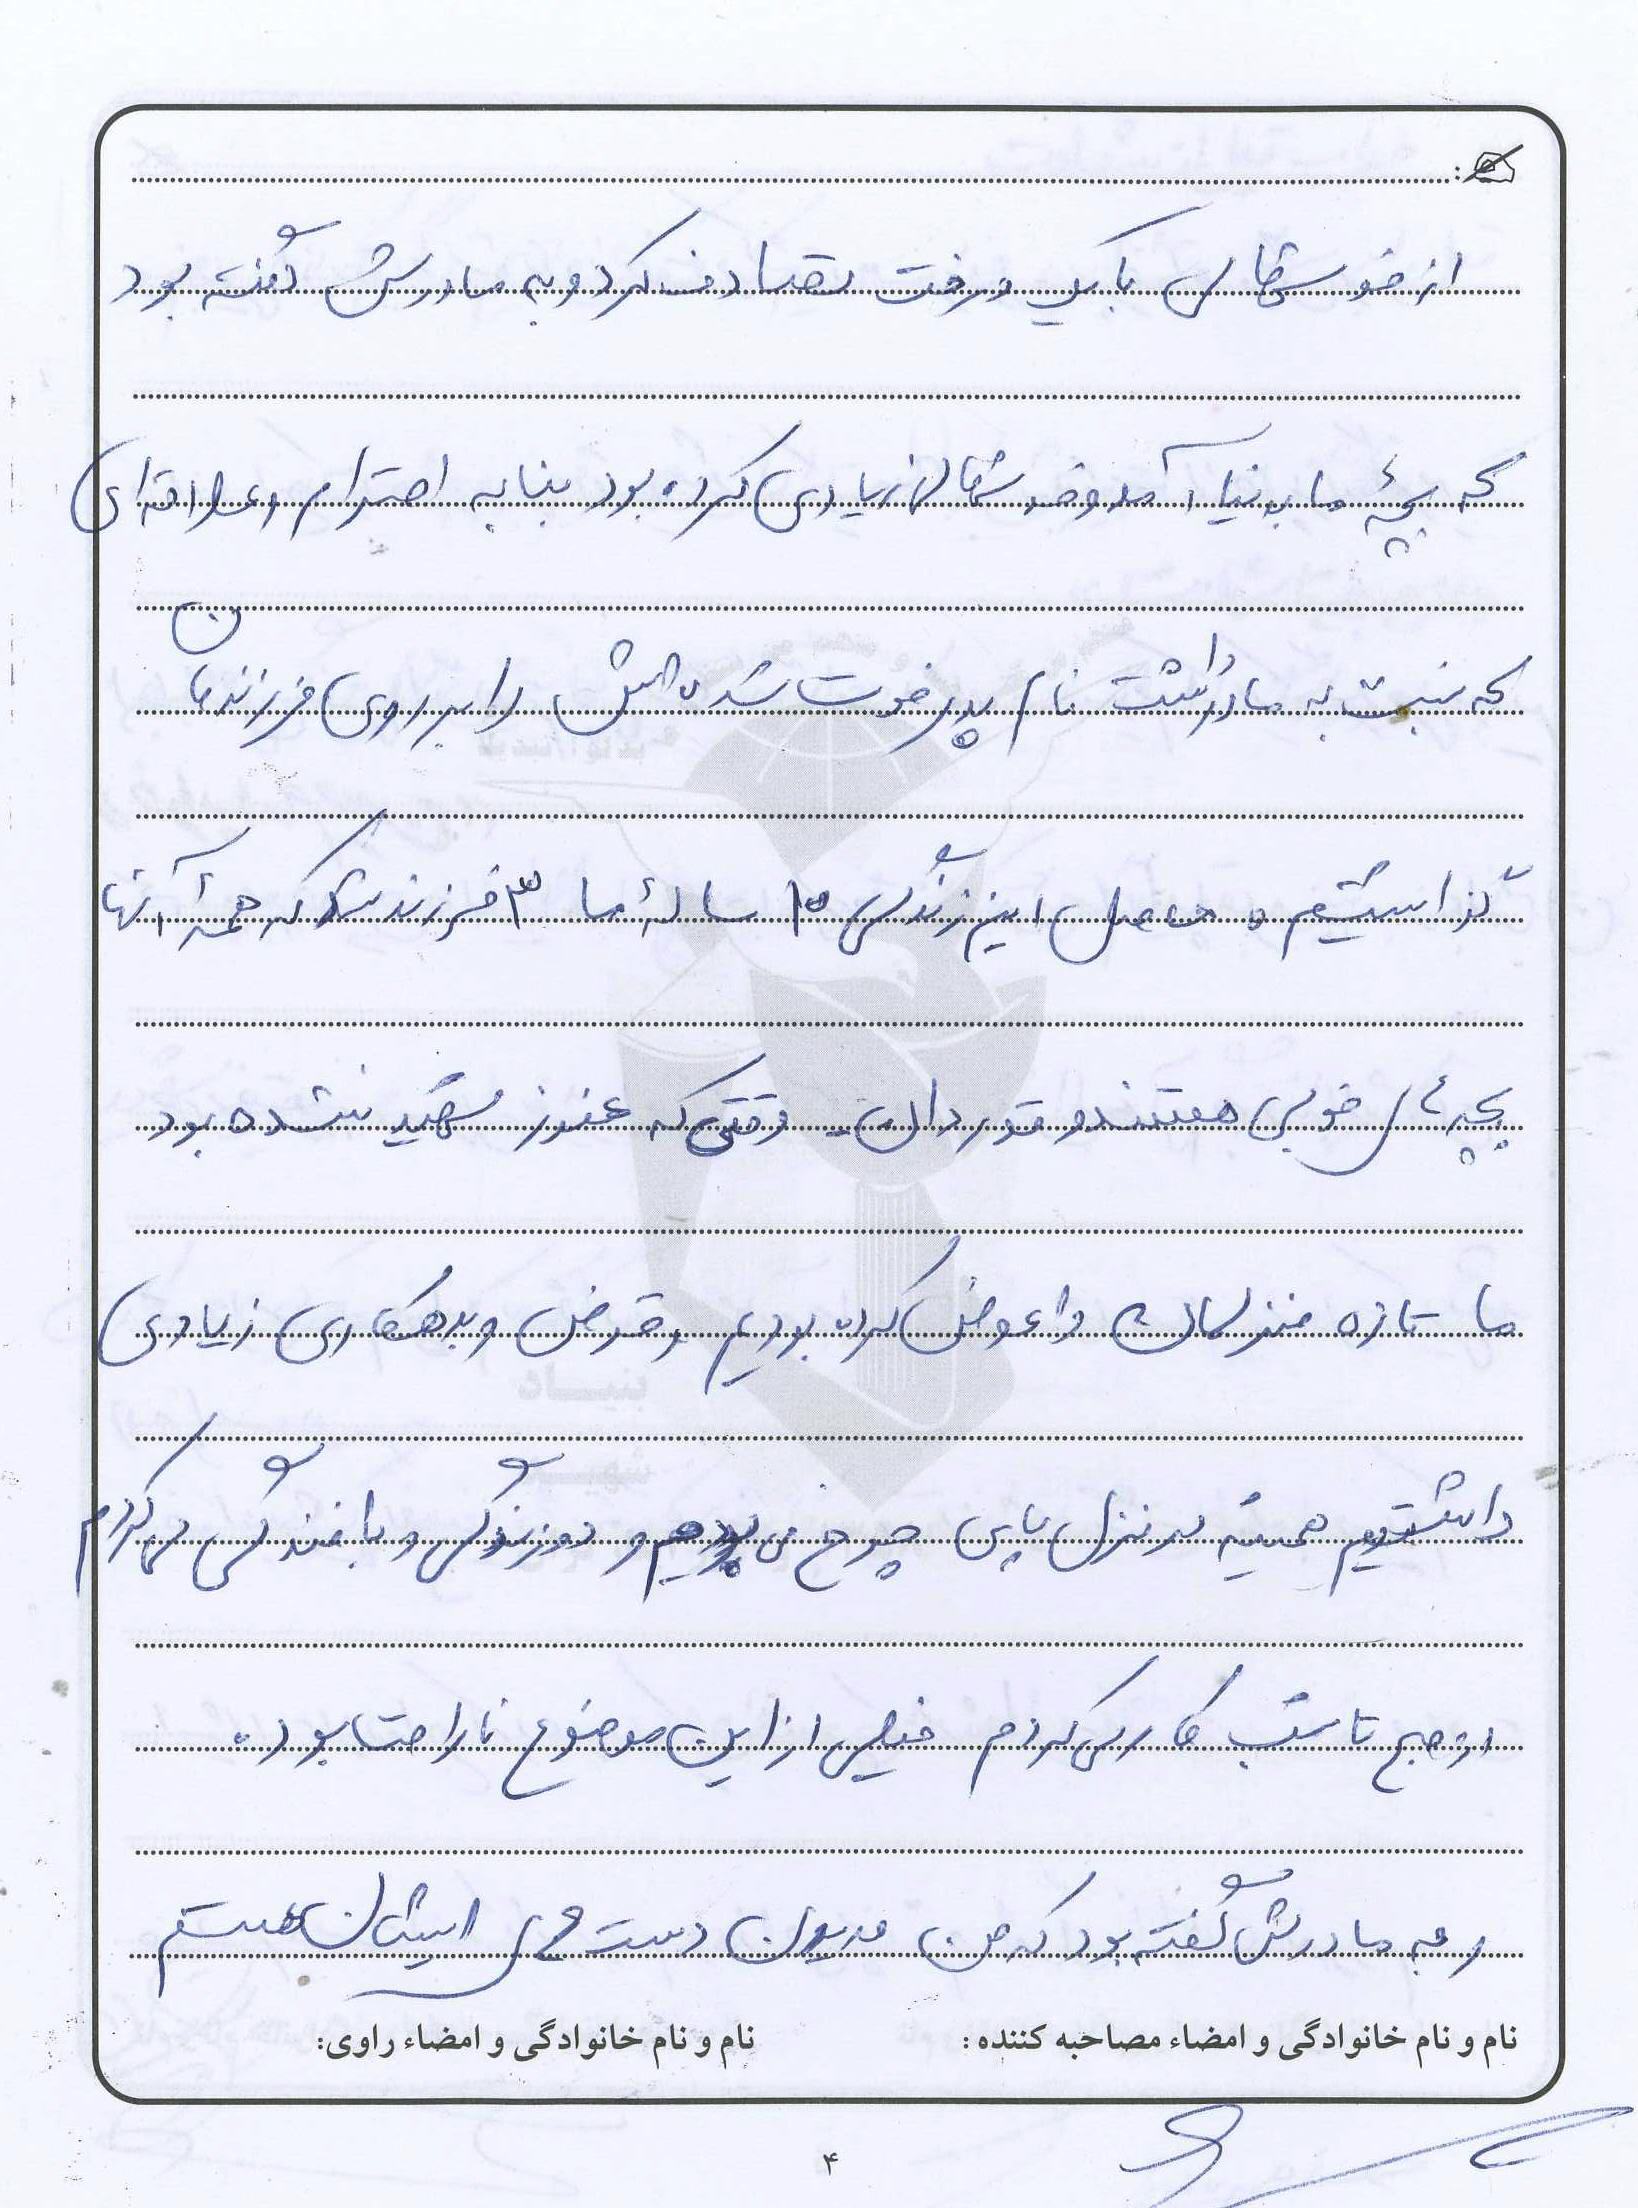 از خوشحالی با یک درخت تصادف کرد و به مادرش گفته بود
که بچهٔ ما به دنیا آمد و خوشحالی زیادی کرده بود بنا به احترام و علاقه‌ای
که نسبت به مادر داشت نام پدر فوت شده اش را بر روی فرزندمان
گذاشتیم. حاصل این زندگی ۱۰ سالهٔ ما ۳ فرزند شد که همهٔ آنها
بچه های خوبی هستند و قدردان. وقتی که هنوز شهید نشده بود
ما تازه منزلمان را عوض کرده بودیم و قرض و بدهکاری زیادی
داشتیم همیشه در منزل پای چرخ می بودم و دوزندگی و بافندگی می کردم
از صبح تا شب کار می کردم خیلی از این موضوع ناراحت بود.
و به مادرش گفته بود که من مدیون دست های ایشان هستم
نام و نام خانوادگی و امضاء مصاحبه کننده :
نام و نام خانوادگی و امضاء راوی:
۴